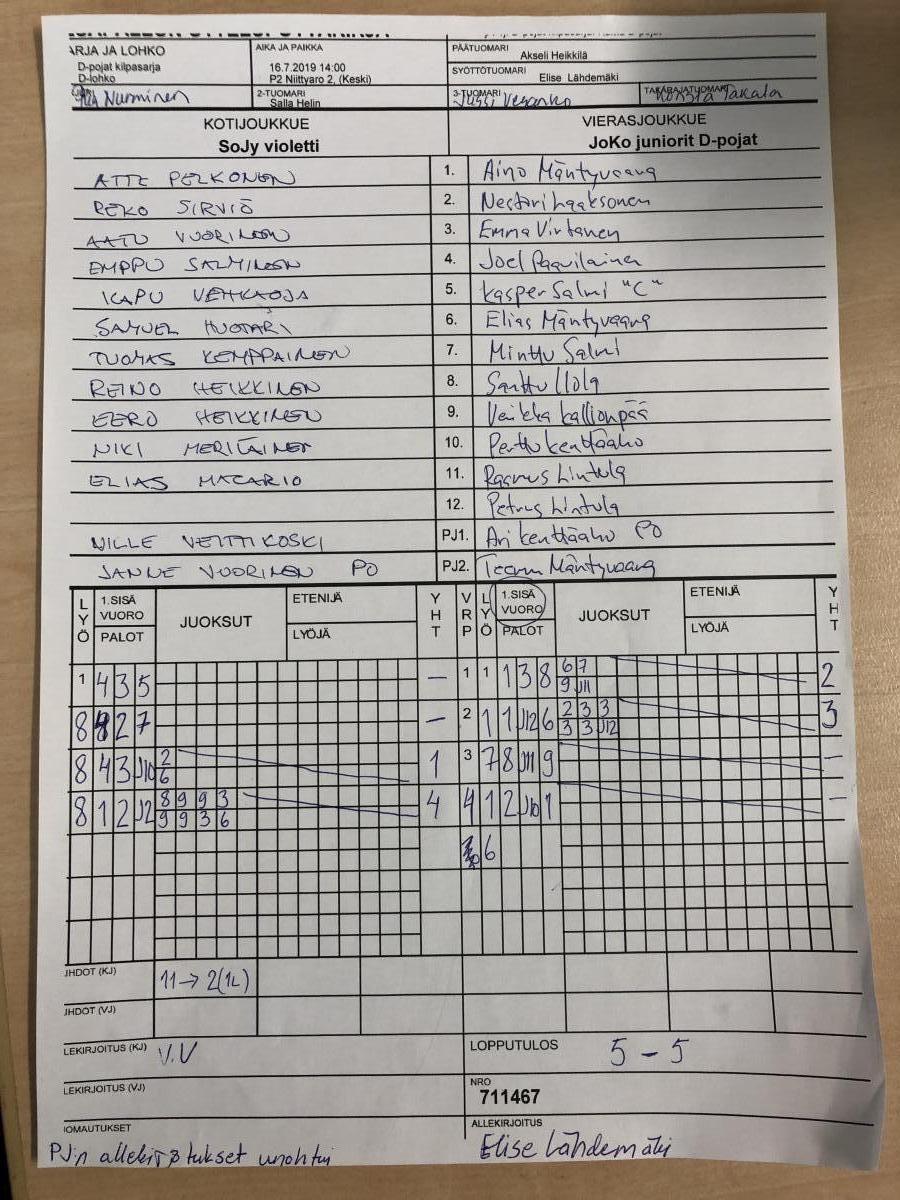 ARJA JA LOHKO
D-pojat kilpasarja
D-lohko
AIKA JA PAIKKA
16.7.2019 14:00
P2 Niittyaro 2, (Keski)
PÄÄTUOMARI
Akseli Heikkilä
SYÖTTÖTUOMARI
Elise Lähdemäki
Nurminen
2-TUOMARI
Salla Helin
3-TUOMARI
Jussi Vesanko
TAKARAJATUOMARI
Takala
KOTIJOUKKUE
SoJy violetti
VIERASJOUKKUE
JoKo juniorit D-pojat
ATTE PELKONEN 1. Aino Mäntyvaara
REKO SIRVIÖ 2. Nestori Laaksonen
AATU VUORINEN 3. Emma Virtanen
EMPPU SALMINEN 4. Joel Paavilainen
KAPU VEHKAOJA 5. Kasper Salmi "C"
SAMUEL HUOTARI 6. Elias Mäntyvaara
TUOMAS KEMPPAINEN 7. Minttu Salmi
REINO HEIKKINEN 8. Santtu Ilola
EERO HEIKKINEN 9. Veikka Kallionpää
NIKI MERILÄINEN 10. Perttu Kenttäaho
ELIAS MACARIO 11. Rasmus Lintula
12. Petrus Lintula
VILLE VEITTIKOSKI PJ1. Ari Kenttäaho PO
JANNE VUORINEN PO PJ2. Teemu Mäntyvaara
LYÖ 1.SISÄ VUORO PALOT JUOKSUT ETENIJÄ LYÖJÄ YHT VRP LYÖ 1.SISÄ VUORO PALOT JUOKSUT ETENIJÄ LYÖJÄ YHT
1 4 3 5 – 1 1 1 3 8 6 7 2
9 J11
8 2 7 – 2 1 1 J12 6 2 3 3 3
3 3 J12
8 4 3 J10 2 1 3 7 8 J11 9 –
6
8 1 2 J2 8 9 9 3 4 4 1 2 1 –
9 9 3 6
6
JHDOT (KJ) 11 → 2(1L)
JHDOT (VJ)
LEKIRJOITUS (KJ) V.V
LOPPUTULOS 5 – 5
LEKIRJOITUS (VJ)
NRO
711467
IOMAUTUKSET
PJ:n allekirjoitukset unohtui
ALLEKIRJOITUS
Elise Lähdemäki